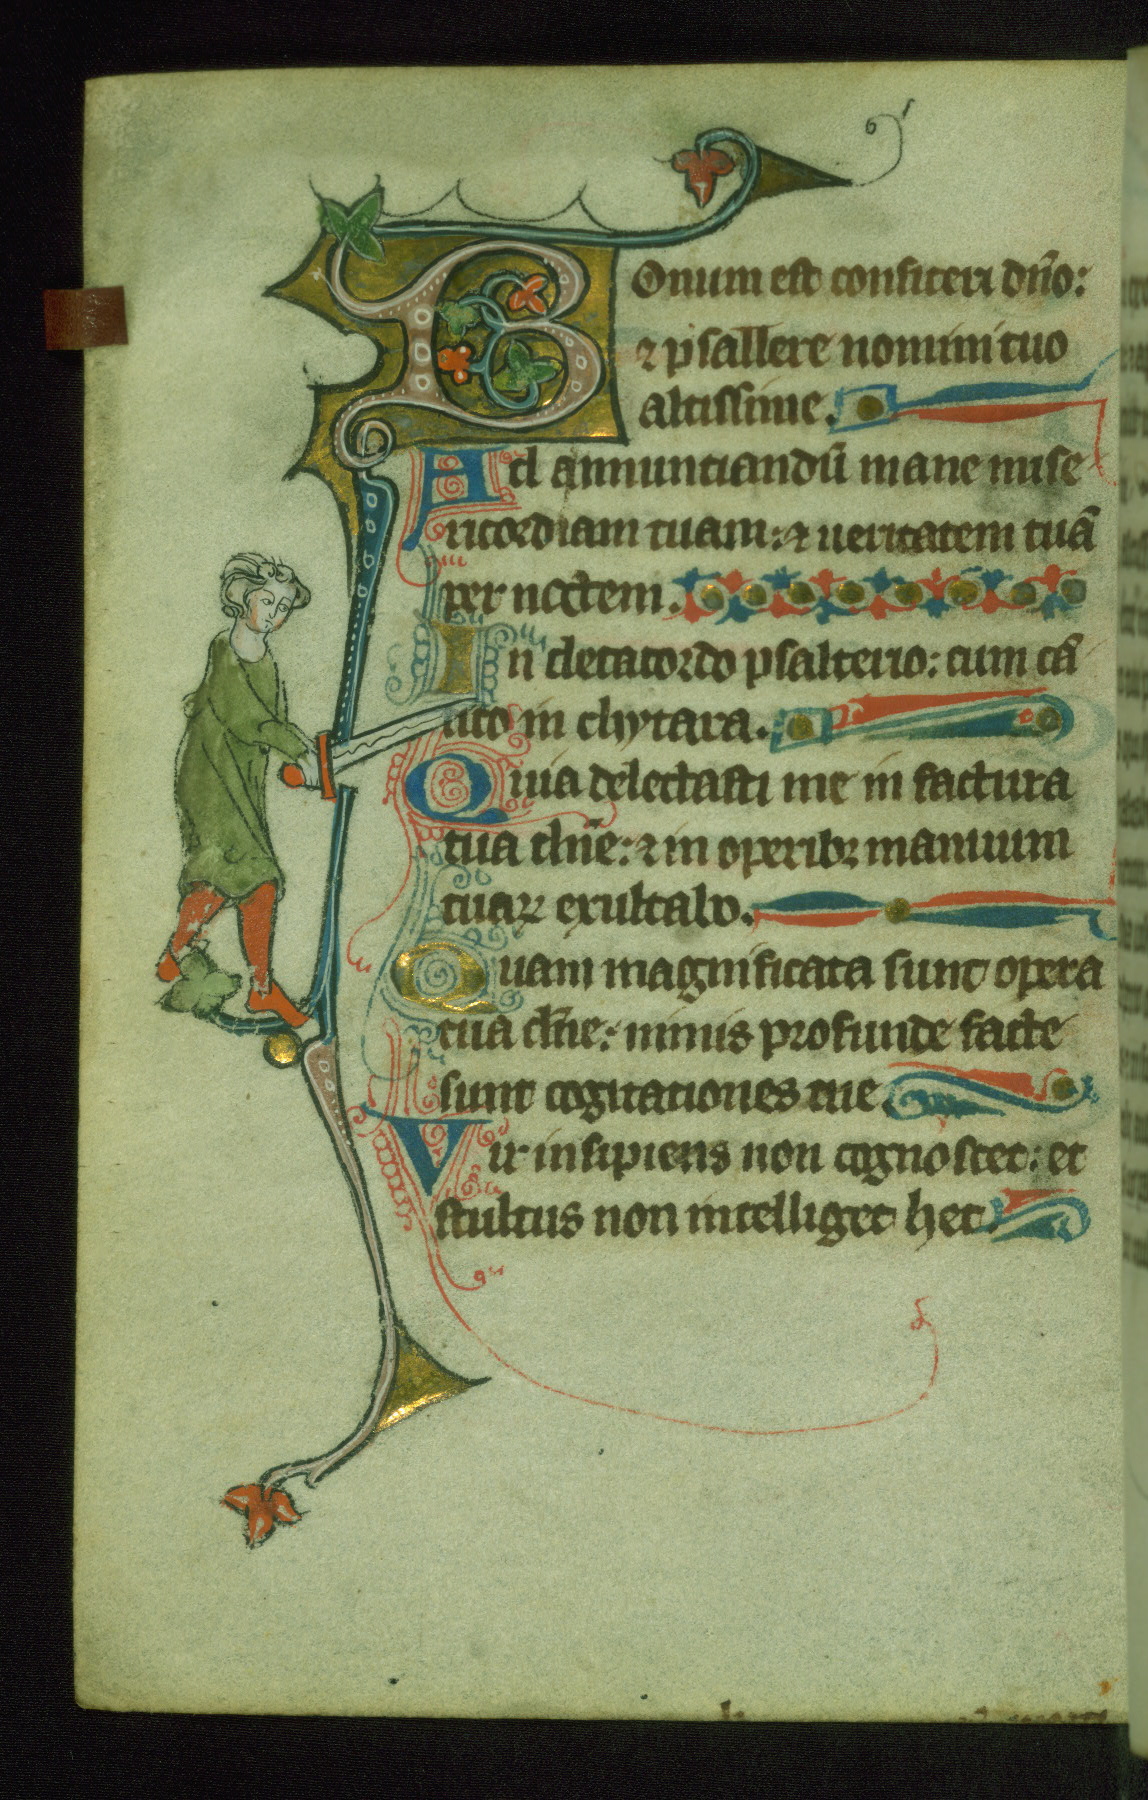 Bonum est confiteri dn̄o:
⁊ psallere nomini tuo
altissime.
Ad annunciandū mane mise
ricordiam tuam: ⁊ ueritatem tuā
per noctem.
In decacordo psalterio: cum cā
tico in chytara.
Quia delectasti me in factura
tua dn̄e: ⁊ in operibꝫ manuum
tuaꝝ exultabo.
Quam magnificata sunt opera
tua dn̄e: nimis profunde facte
sunt cogitationes tue.
Vir insipiens non cognoscet: et
stultus non intelliget hec.